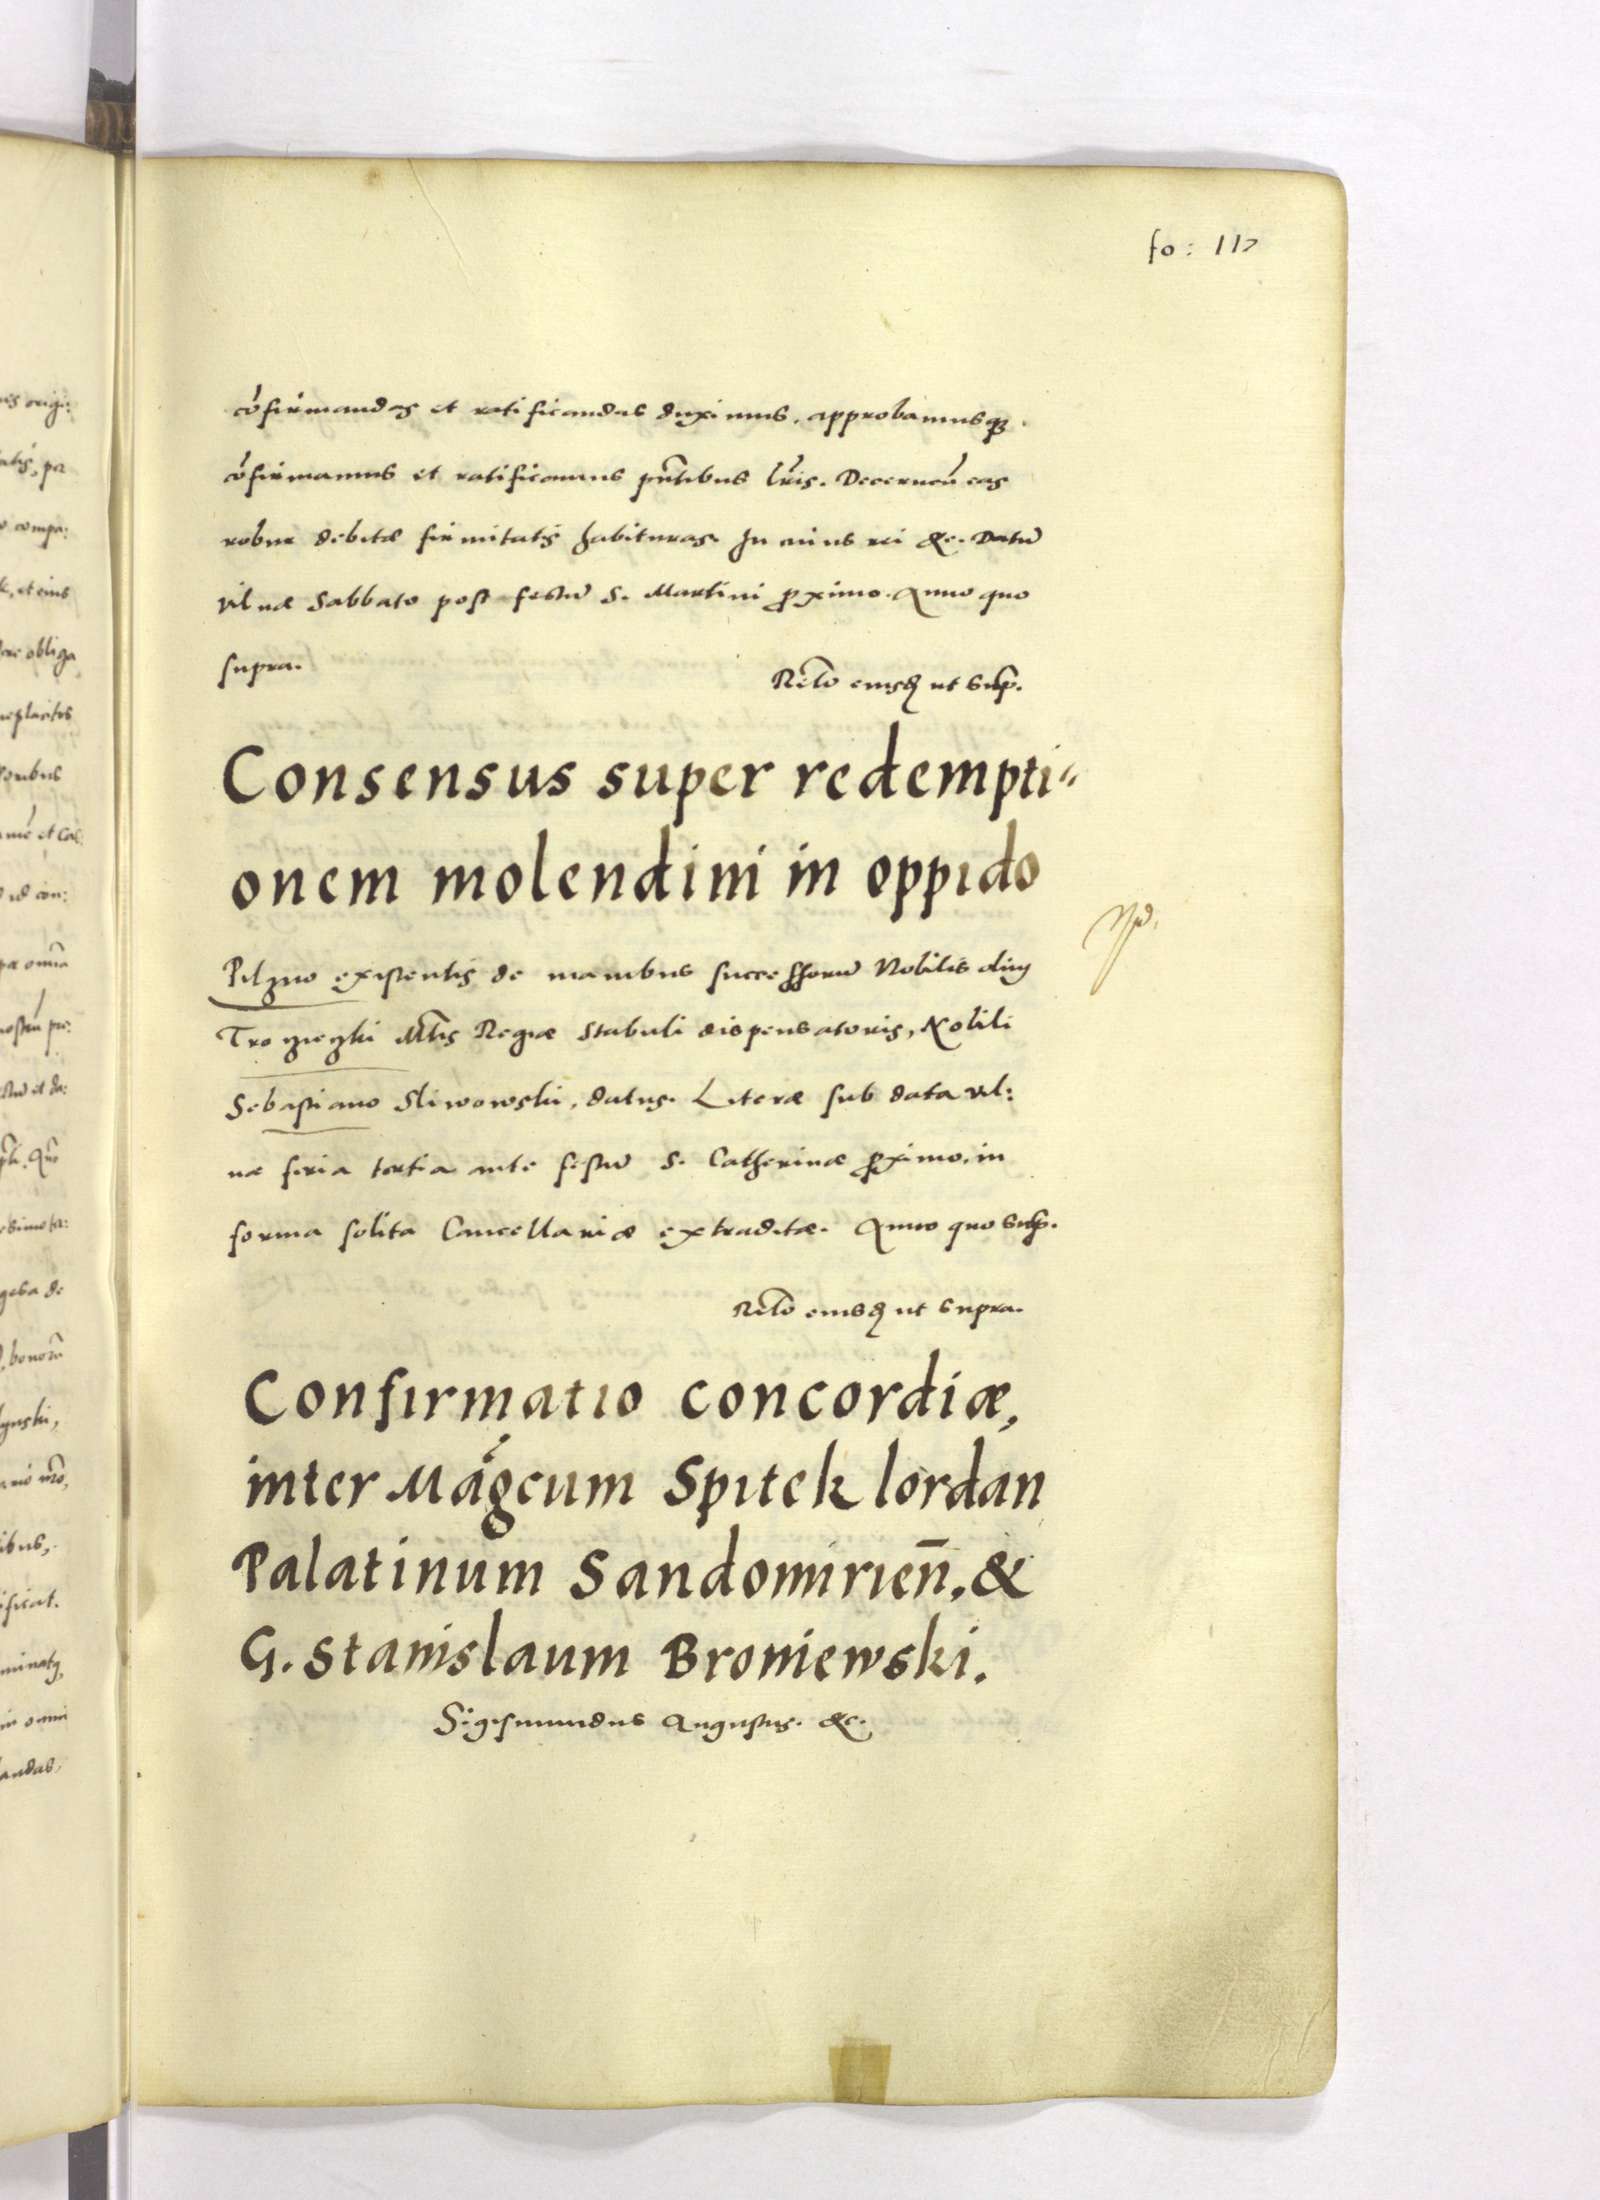 fo: 117
cõfirmandas et ratificandas duximus, approbamusq3
cõfirmamus et ratificamus pñtibus lr̃is. Decernen̄ eas
robur debitæ firmitatis habituras. In cuius rei &c. Datũ
Vilnæ Sabbato post festũ S. Martini ꝓximo. Anno quo
supra.
Rel̃o eiusđ ut sup̃.
Consensus super redempti=
onem molendini in oppido
Pilzno existentis de manibus successorũ Nobilis olim
Troziezki Mt̃is Regiæ Stabuli dispensatoris, Nobili
Sebastiano Sliwowski, datus. Literæ sub data Vil:
næ feria tertia ante festũ S. Catherinæ ꝓximo, in
forma solita Cancellariæ extraditæ. Anno quo sup̃.
Rel̃o eiusđ ut supra.
Confirmatio concordiæ,
inter Mag̃cum Spitek Iordan
Palatinum Sandomirien̄, &
G. Stanislaum Broniewski.
Sigismundus Augustus. &c.